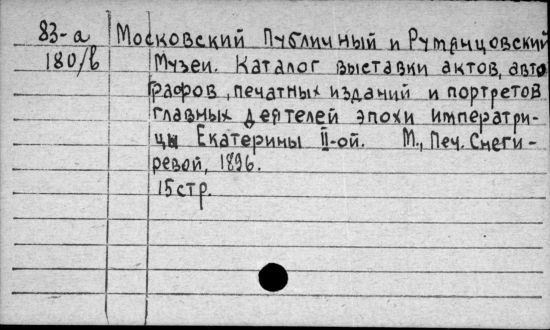 83-а Московский Публичный и Румянцовский
180/в Музеи. Каталог выставки актов, авто
графов, печатных изданий и портретов
главных деятелей эпохи императри-
цы Екатерины II-ой. М., Печ. Снеги-
ревой, 1896.
15 стр.